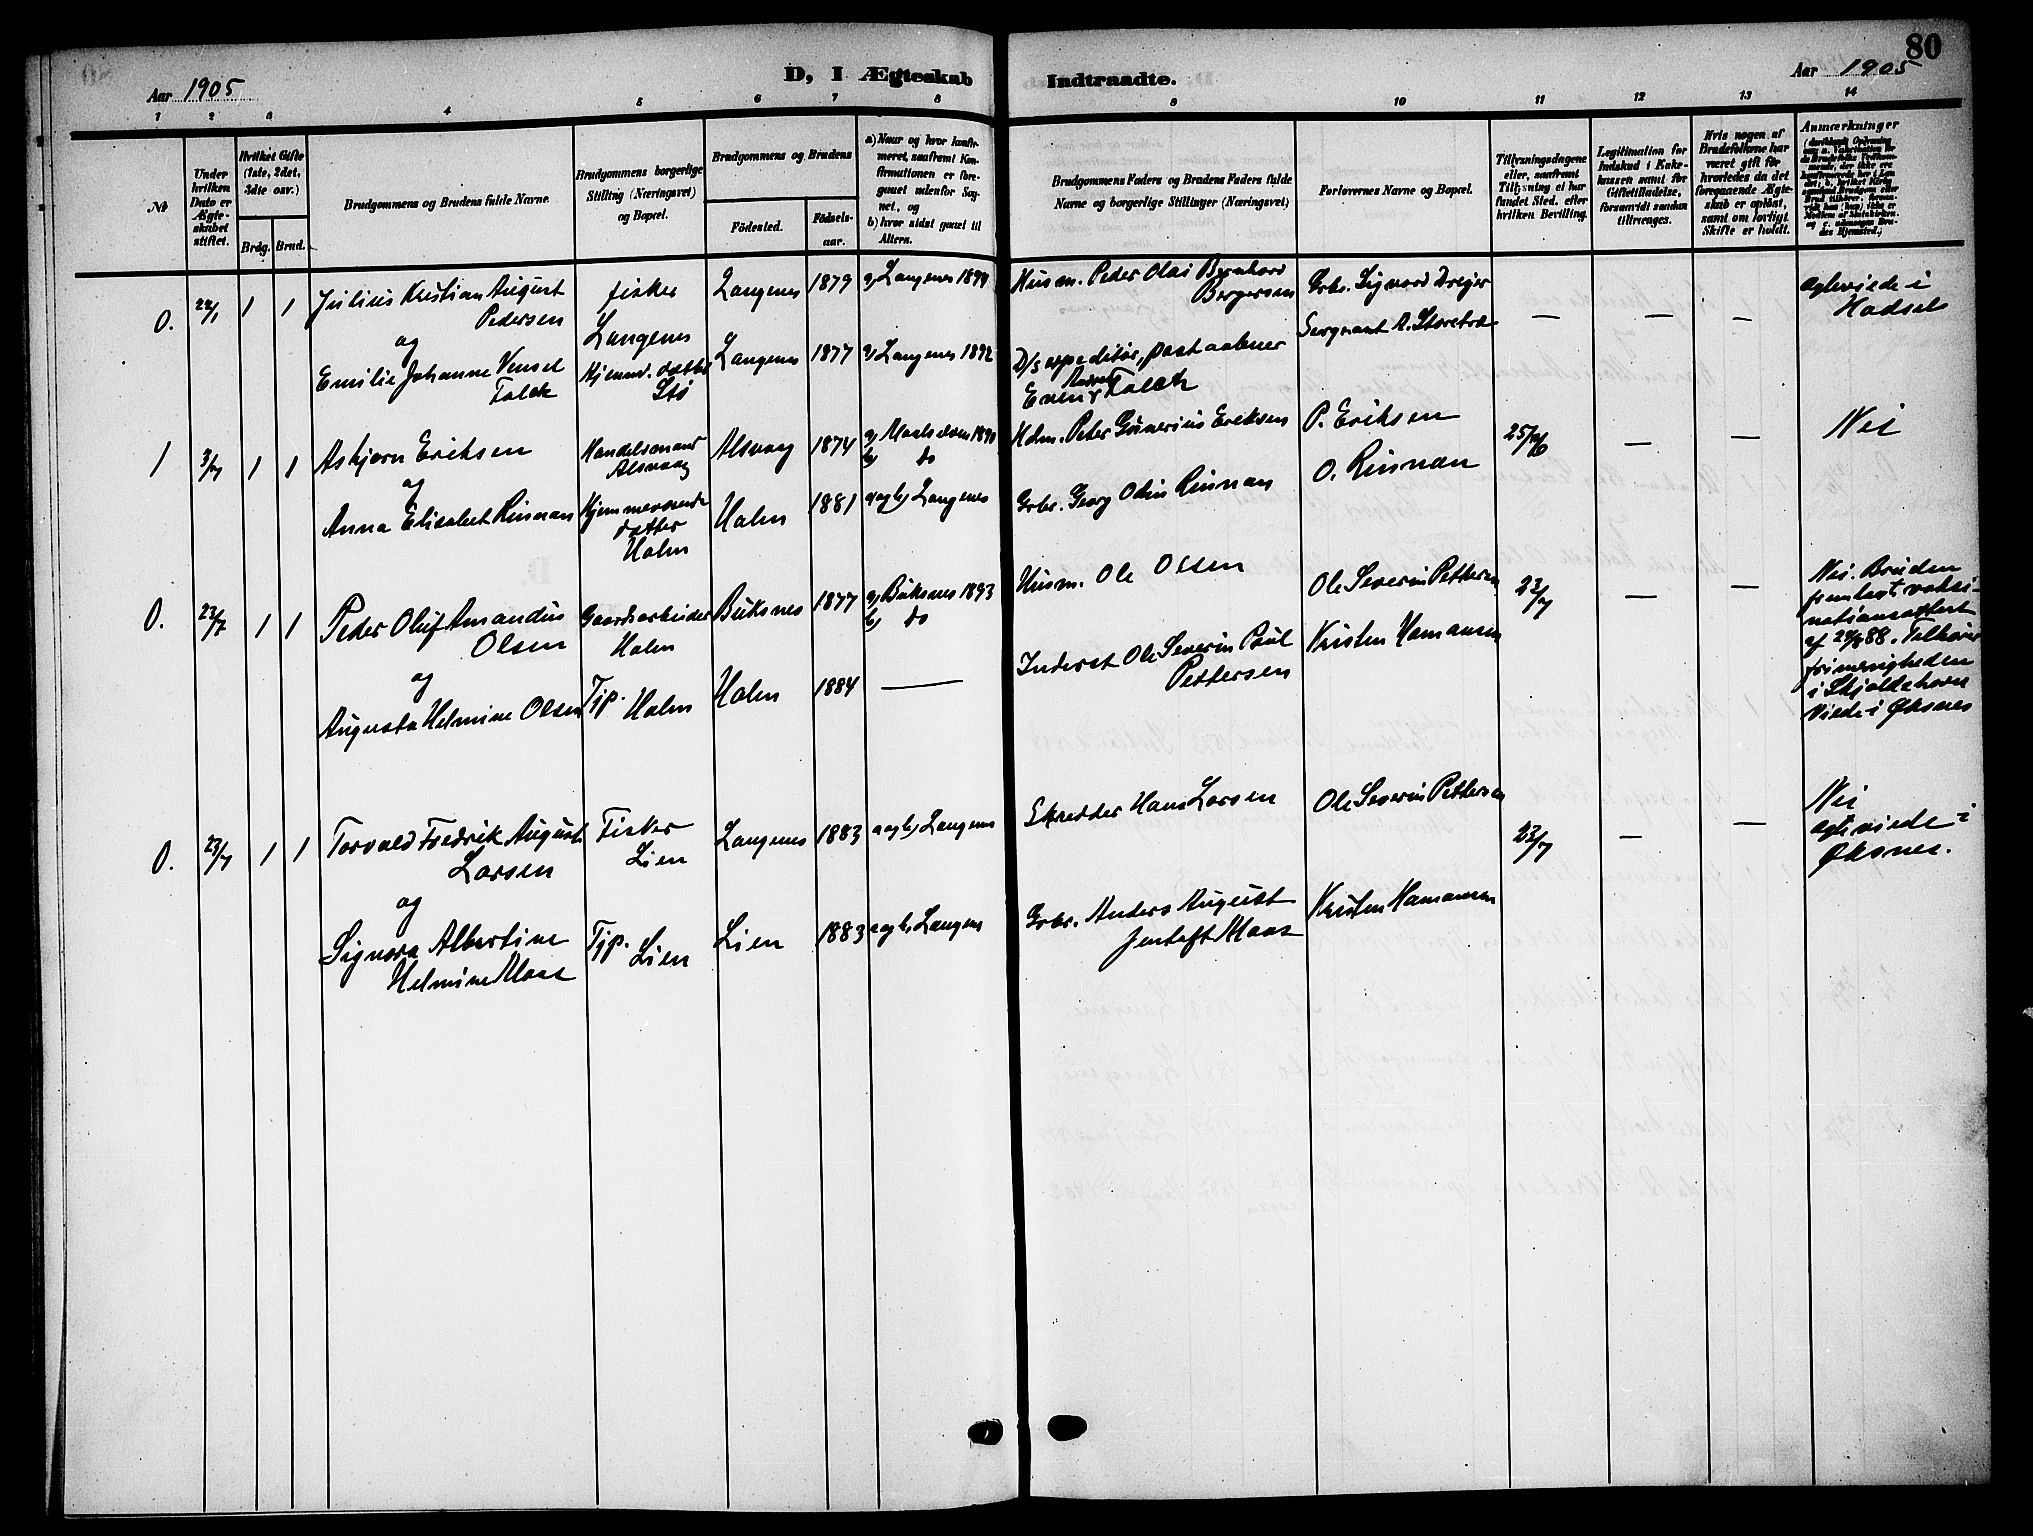 80
Aar 1905
D, I Ægteskab
Indtraadte.
Aar 1905
1 2 3 4 5 6 7 8 9 10 11 12 13 14
№
Under
hvilken
Dato er
Ægte-
skabet
stiftet.
Hvilket Gifte
(1ste, 2det,
3die osv.)
Brdg. Brud.
Brudgommens og Brudens fulde Navne.
Brudgommens borgerlige
Stilling (Næringsvei)
og Bopæl.
Brudgommens og Brudens
Fødested.
Fødsels-
aar.
a) Naar og hvor konfir-
meret, saafremt Kon-
firmationen er fore-
gaaet udenfor Sog-
net, og
b) hvor sidst gaaet til
Alters.
Brudgommens Faders og Brudens Faders fulde
Navne og borgerlige Stillinger (Næringsvei)
Forlovernes Navne og Bopæl.
Tillysningsdagene
eller, saafremt
Tillysning ei har
fundet Sted, efter
hvilken Bevilling.
Legitimation for
Indskud i Enke-
kassen samt for
Giftetilladelse,
forsaavidt saadan
tiltrænges.
Hvis nogen af
Brudefolkene har
været gift før
hvorledes da det
foregaaende Ægte-
skab er opløst,
samt om lovligt
Skifte er holdt.
Anmærkninger
0. 22/1 1 1
Julius Kristian August
Pedersen
og
Emilie Johanne Vensel
Falck
fisker
Langenes
Hjemmv. datter
Stø
Langenes 1879 a) Langenes 1894
Langenes 1877 a) Langenes 1892
Husm. Peder Olai Bernhard
Bergersen
D/s expeditør, postaabner
Even Falck
Grbr. Signord Dreyer
Sergeant A. Storebra
— — —
agtevied i
Hadsel
1 3/7 1 1
Asbjørn Eriksen
og
Anna Elisabet Rinnan
Handelsmand
Alsvaag
Hjemmeværende
datter
Holm
Alsvaag 1874
b) do
Holm 1881 a og b) Langenes
Hdm. Peter Gunerius Eriksen
Grbr. Georg Odin Rinnan
P. Eriksen
O. Rinnan
— —
Nei
0. 23/7 1 1
Peder Oluf Amandus
Olsen
og
Augusta Helmine Olsen
Gaardsarbeider
Holm
Tjp. Holm
Buksnes 1877 a) Buksnes 1893
b) do
Holm 1884 —
Husm. Ole Olsen
Inderst Ole Severin Paul
Pettersen
Ole Severin Pettersen
Kristen Hamansen
23/7 — —
Nei. Bruden
fremlagt vaksi-
nationsattest
af 24/8 88. Tilhører
frimenigheden
i Skjoldehavn
Viede i Øksnes
0. 23/7 1 1
Torvald Fredrik August
Larsen
og
Signora Albertine
Helmine Maas
Fisker
Lien
Tjp.
Lien
Langenes 1883 a og b) Langenes
Lien 1883 a og b) Langenes
Skredder Hans Larsen
Grbr. Anders August
Jentoft Maas
Ole Severin Pettersen
Kristen Hamansen
23/7 — —
Nei
agtviede i
Øksnes.